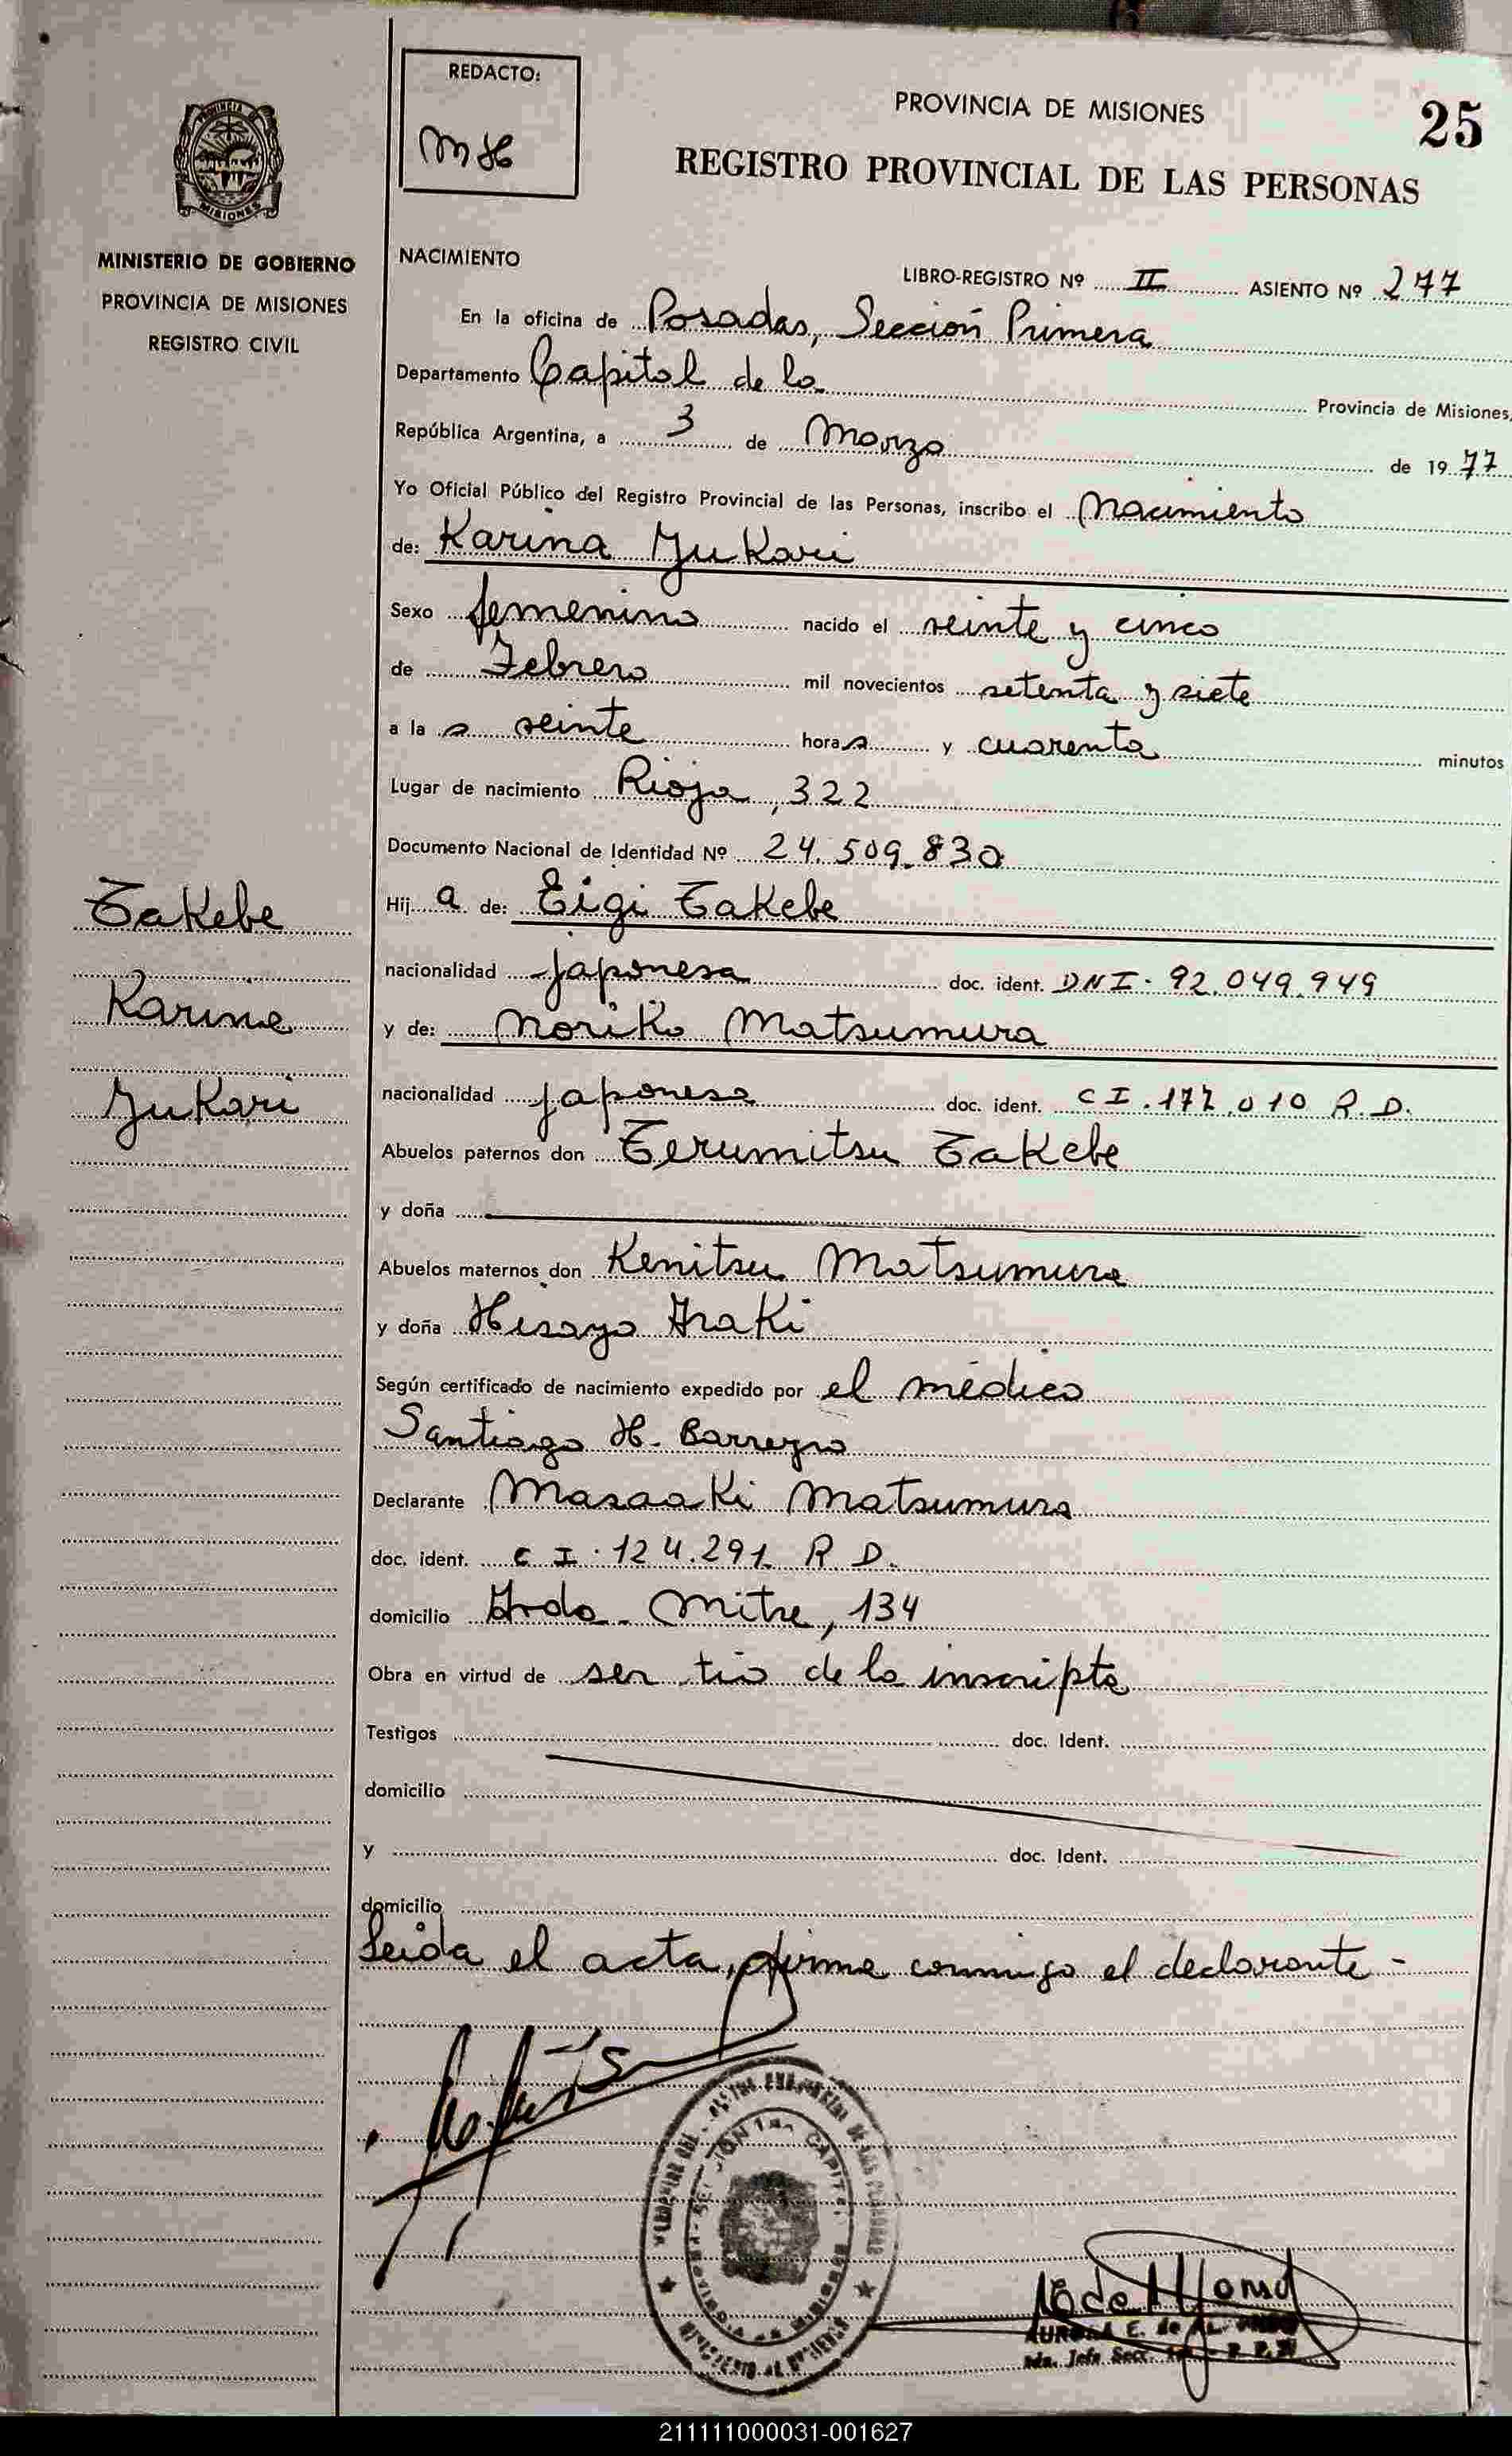 REDACTO:
MH
PROVINCIA DE MISIONES
25
REGISTRO PROVINCIAL DE LAS PERSONAS
PROVINCIA
MISIONES
MINISTERIO DE GOBIERNO
PROVINCIA DE MISIONES
REGISTRO CIVIL
Takebe
Karina
Yukari
NACIMIENTO
LIBRO-REGISTRO Nº II ASIENTO Nº 277
En la oficina de Posadas, Sección Primera
Departamento Capital de la Provincia de Misiones,
República Argentina, a 3 de Marzo de 1977
Yo Oficial Público del Registro Provincial de las Personas, inscribo el Nacimiento
de: Karina Yukari
Sexo femenino nacido el veinte y cinco
de Febrero mil novecientos setenta y siete
a la s veinte horas y cuarenta minutos
Lugar de nacimiento Rioja, 322
Documento Nacional de Identidad Nº 24.509.830
Hij a de: Eigi Takebe
nacionalidad japonesa doc. ident. DNI. 92.049.949
y de: Noriko Matsumura
nacionalidad japonesa doc. ident. CI. 177.010 R.D.
Abuelos paternos don Terumitsu Takebe
y doña
Abuelos maternos don Kenitsu Matsumura
y doña Hisayo Araki
Según certificado de nacimiento expedido por el médico
Santiago H. Barreyro
Declarante Masaaki Matsumura
doc. ident. C I. 124.291 R D.
domicilio Avda. Mitre, 134
Obra en virtud de ser tío de la inscripta
Testigos doc. Ident.
domicilio
y doc. Ident.
domicilio
Leída el acta, firma conmigo el declarante -
AURORA E. de
211111000031-001627